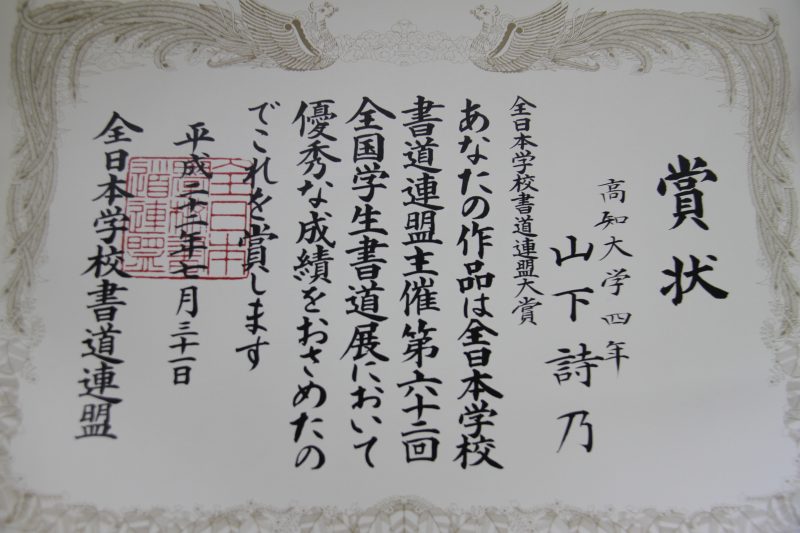 賞状
高知大学四年
山下詩乃
全日本学校書道連盟大賞
あなたの作品は全日本学校
書道連盟主催第六十二回
全国学生書道展において
優秀な成績をおさめたの
でこれを賞します
平成二十二年七月三十一日
全日本学校書道連盟